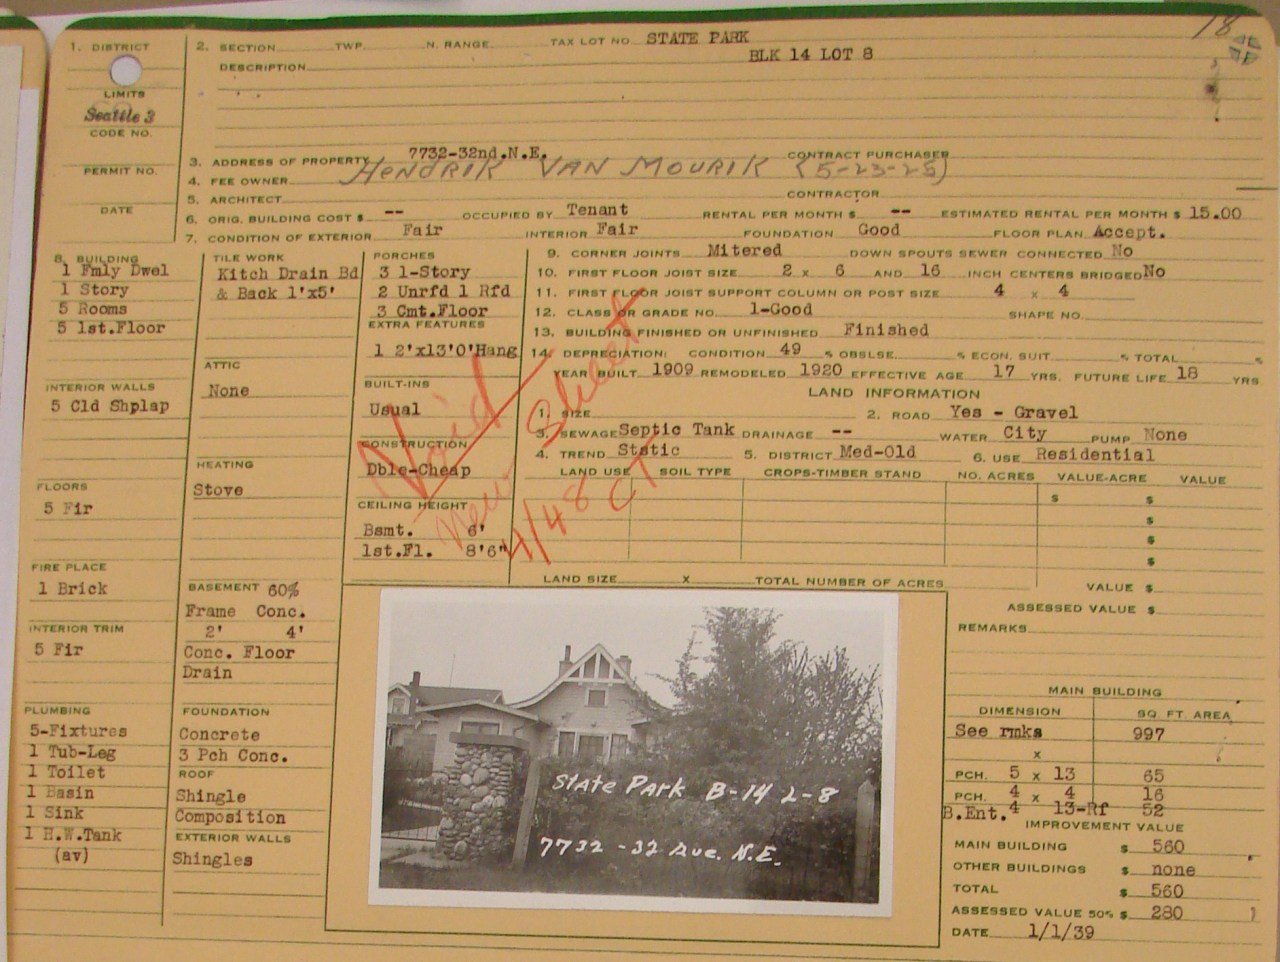 18
1. DISTRICT
LIMITS
Seattle 3
CODE NO.
PERMIT NO.
DATE
2. SECTION TWP. N. RANGE TAX LOT NO. STATE PARK
BLK 14 LOT 8
DESCRIPTION
3. ADDRESS OF PROPERTY 7732-32nd.N.E. CONTRACT PURCHASER
4. FEE OWNER HENDRIK VAN MOURIK (5-23-25)
5. ARCHITECT CONTRACTOR
6. ORIG. BUILDING COST $ -- OCCUPIED BY Tenant RENTAL PER MONTH $ -- ESTIMATED RENTAL PER MONTH $ 15.00
7. CONDITION OF EXTERIOR Fair INTERIOR Fair FOUNDATION Good FLOOR PLAN Accept.
8. BUILDING
1 Fmly Dwel
1 Story
5 Rooms
5 1st.Floor
INTERIOR WALLS
5 Cld Shplap
FLOORS
5 Fir
FIRE PLACE
1 Brick
INTERIOR TRIM
5 Fir
PLUMBING
5-Fixtures
1 Tub-Leg
1 Toilet
1 Basin
1 Sink
1 H.W.Tank
(av)
TILE WORK
Kitch Drain Bd
& Back 1'x5'
ATTIC
None
HEATING
Stove
BASEMENT 60%
Frame Conc.
2' 4'
Conc. Floor
Drain
FOUNDATION
Concrete
3 Pch Conc.
ROOF
Shingle
Composition
EXTERIOR WALLS
Shingles
PORCHES
3 1-Story
2 Unrfd 1 Rfd
3 Cmt.Floor
EXTRA FEATURES
1 2'x13'0'Hang
BUILT-INS
Usual
CONSTRUCTION
Dble-Cheap
CEILING HEIGHT
Bsmt. 6'
1st.Fl. 8'6"
Void
New Sheet
4/48 CT
9. CORNER JOINTS Mitered DOWN SPOUTS SEWER CONNECTED No
10. FIRST FLOOR JOIST SIZE 2 x 6 AND 16 INCH CENTERS BRIDGED No
11. FIRST FLOOR JOIST SUPPORT COLUMN OR POST SIZE 4 x 4
12. CLASS OR GRADE NO. 1-Good SHAPE NO.
13. BUILDING FINISHED OR UNFINISHED Finished
14. DEPRECIATION: CONDITION 49 % OBSLSE. % ECON. SUIT % TOTAL %
YEAR BUILT 1909 REMODELED 1920 EFFECTIVE AGE 17 YRS. FUTURE LIFE 18 YRS
LAND INFORMATION
1. SIZE 2. ROAD Yes - Gravel
3. SEWAGE Septic Tank DRAINAGE -- WATER City PUMP None
4. TREND Static 5. DISTRICT Med-Old 6. USE Residential
LAND USE SOIL TYPE CROPS-TIMBER STAND NO. ACRES VALUE-ACRE VALUE
$ $
$
$
$
LAND SIZE x TOTAL NUMBER OF ACRES VALUE $
ASSESSED VALUE $
REMARKS
State Park B-14 L-8
7732 - 32 Ave. N.E.
MAIN BUILDING
DIMENSION SQ. FT. AREA
See rmks 997
x
PCH. 5 x 13 65
PCH. 4 x 4 16
B.Ent. 4 13-Rf 52
IMPROVEMENT VALUE
MAIN BUILDING $ 560
OTHER BUILDINGS $ none
TOTAL $ 560
ASSESSED VALUE 50% $ 280
DATE 1/1/39